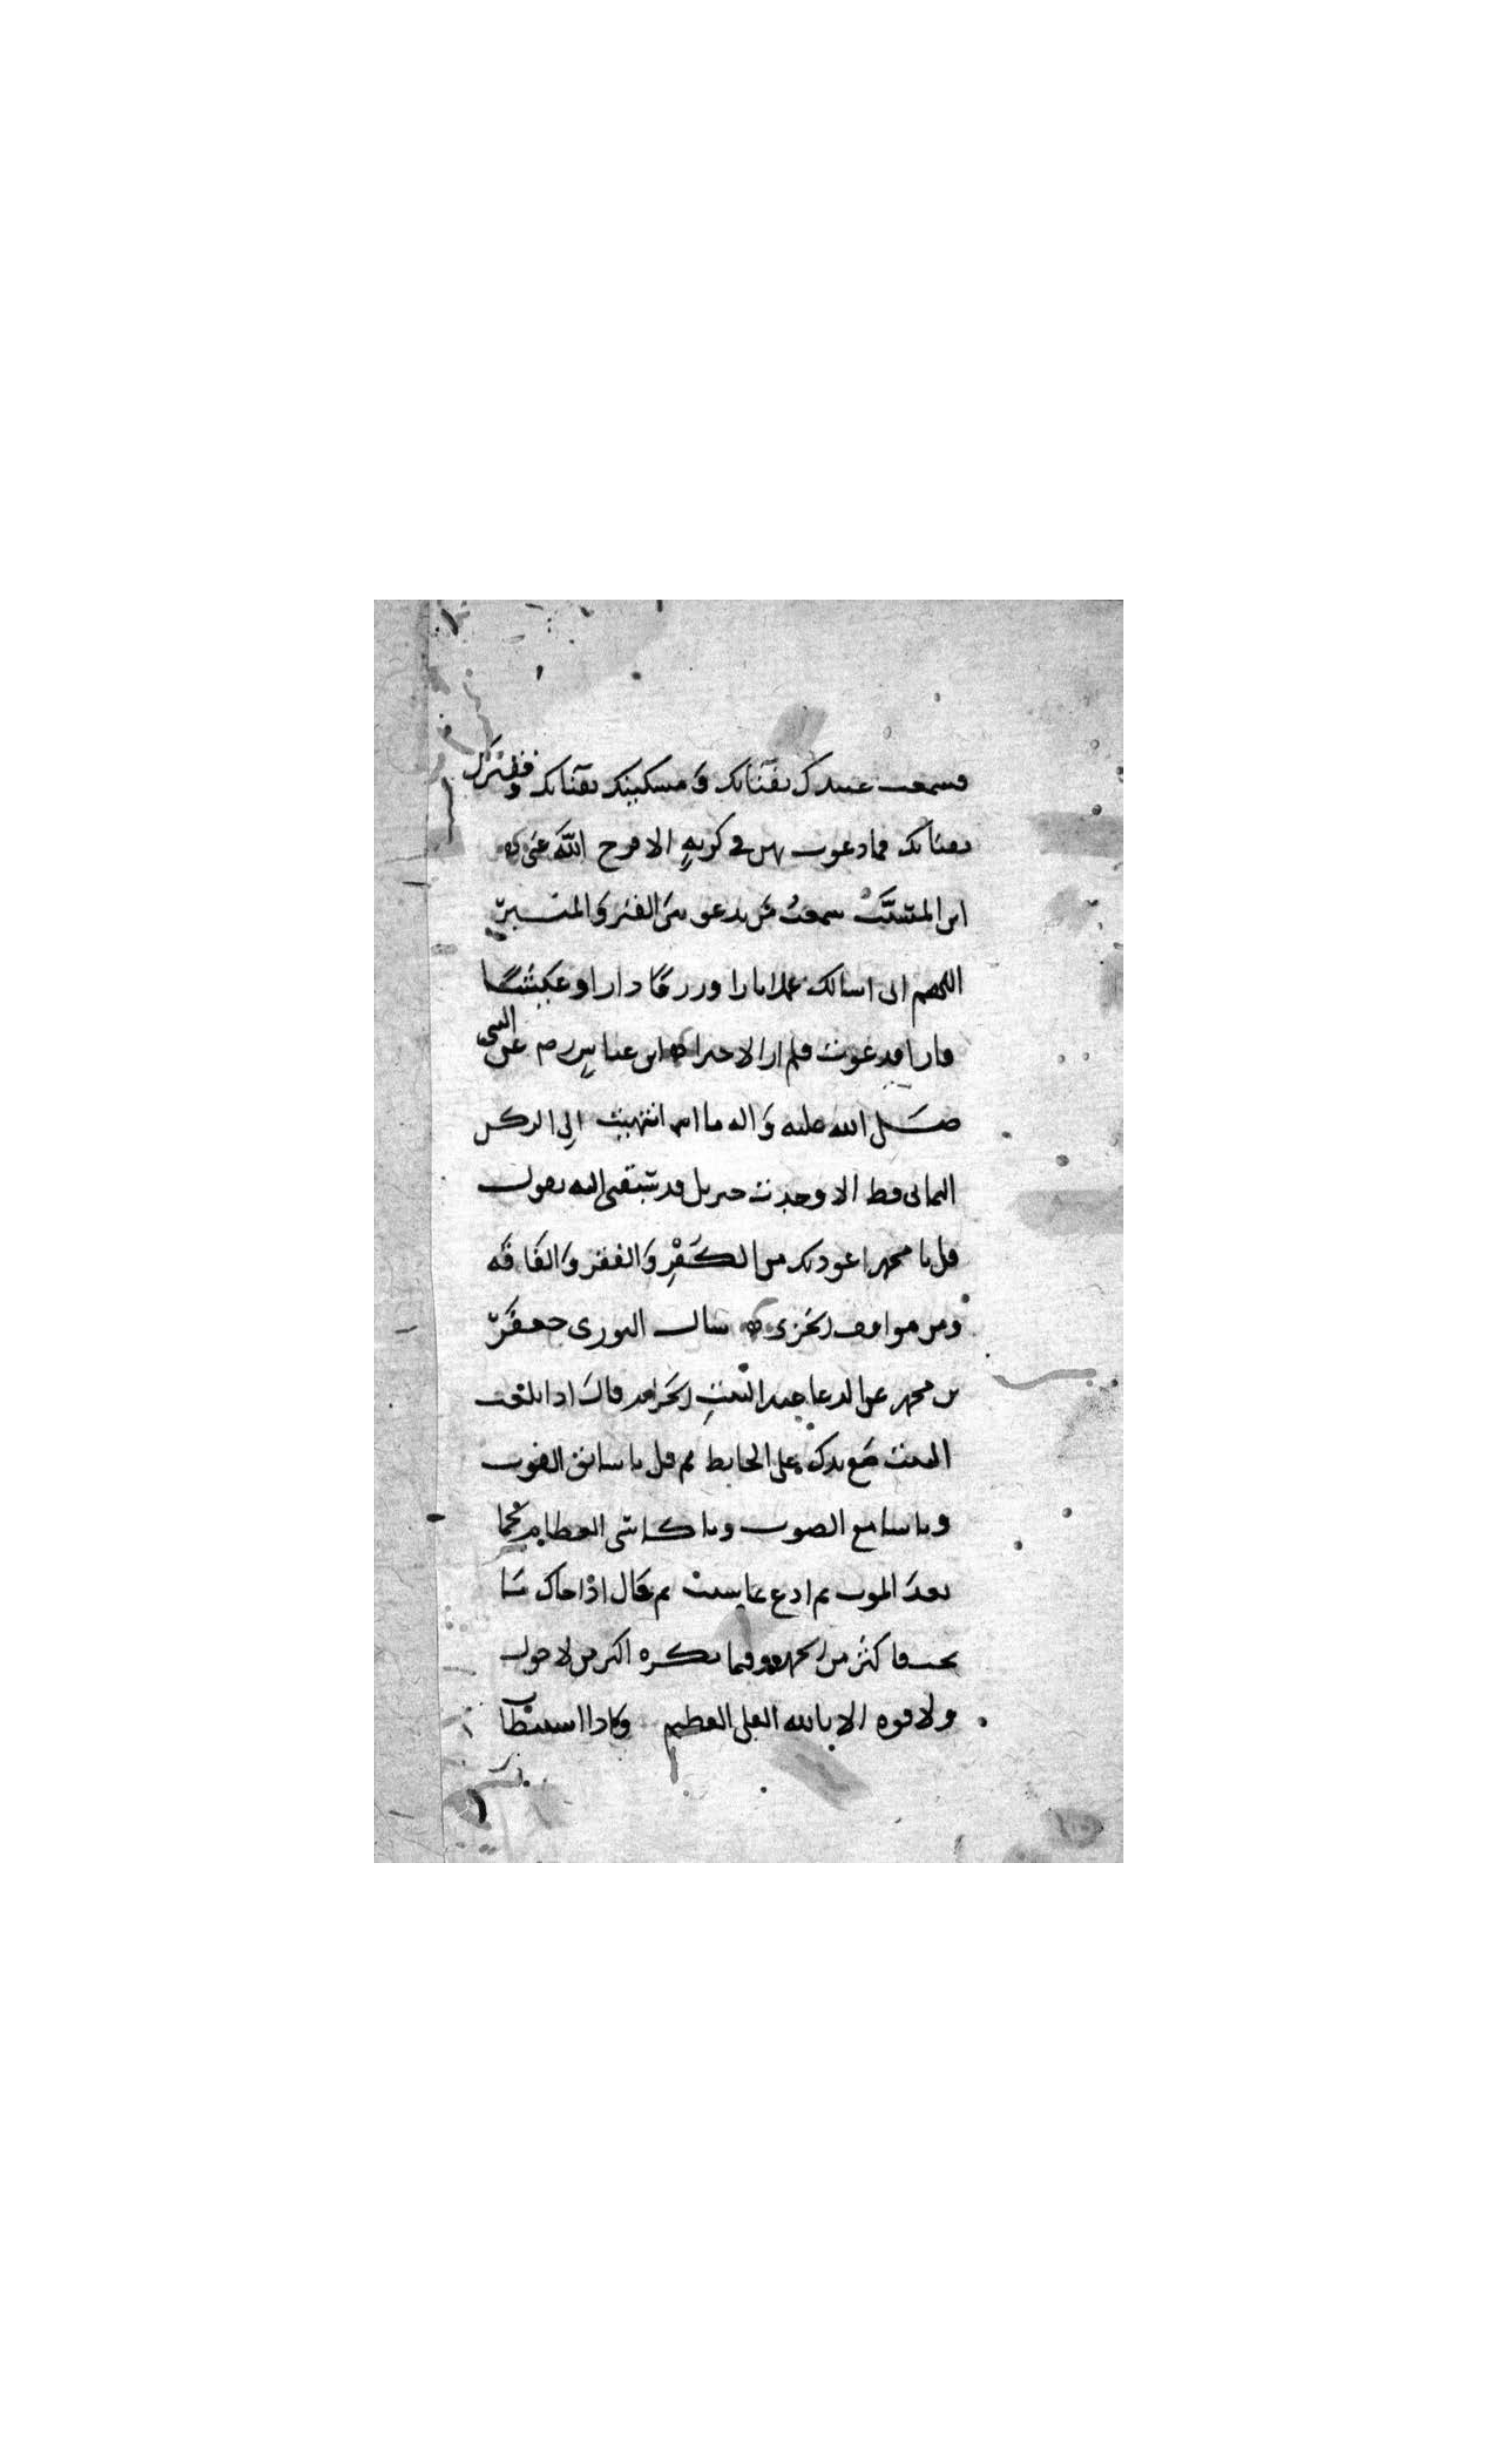 فسمعت عبيدك بفنائك ومسكينك بفنائك وفقيرك
بفنائك فما دعوت بهن في كربة الا فرج الله عني
ابن المسيب سمعت من يدعو بين القبر والمنبر
اللهم اني اسالك عملا بارا ورزقا دارا وعيشا
قارا فدعوت فلم ار الا خيرا ابن عباس رم عن النبي
صلى الله عليه واله ما انتهيت الى الركن
اليماني قط الا وجدت جبريل قد سبقني اليه يقول
قل يا محمد اعوذ بك من الكفر والفقر والفاقه
ومن مواقف الخزي سال الثوري جعفر
بن محمد عن الدعا عند البيت الحرام قال اذا بلغت
البيت ضع يدك على الحايط ثم قل يا سابق الفوت
ويا سامع الصوت ويا كاسي العظام لحما
بعد الموت ثم ادع بما شيت ثم قال اذا جاك ما
تحب فاكثر من الحمد وفيما تكره اكثر من لا حول
ولا قوه الا بالله العلي العظيم واذا استبطات